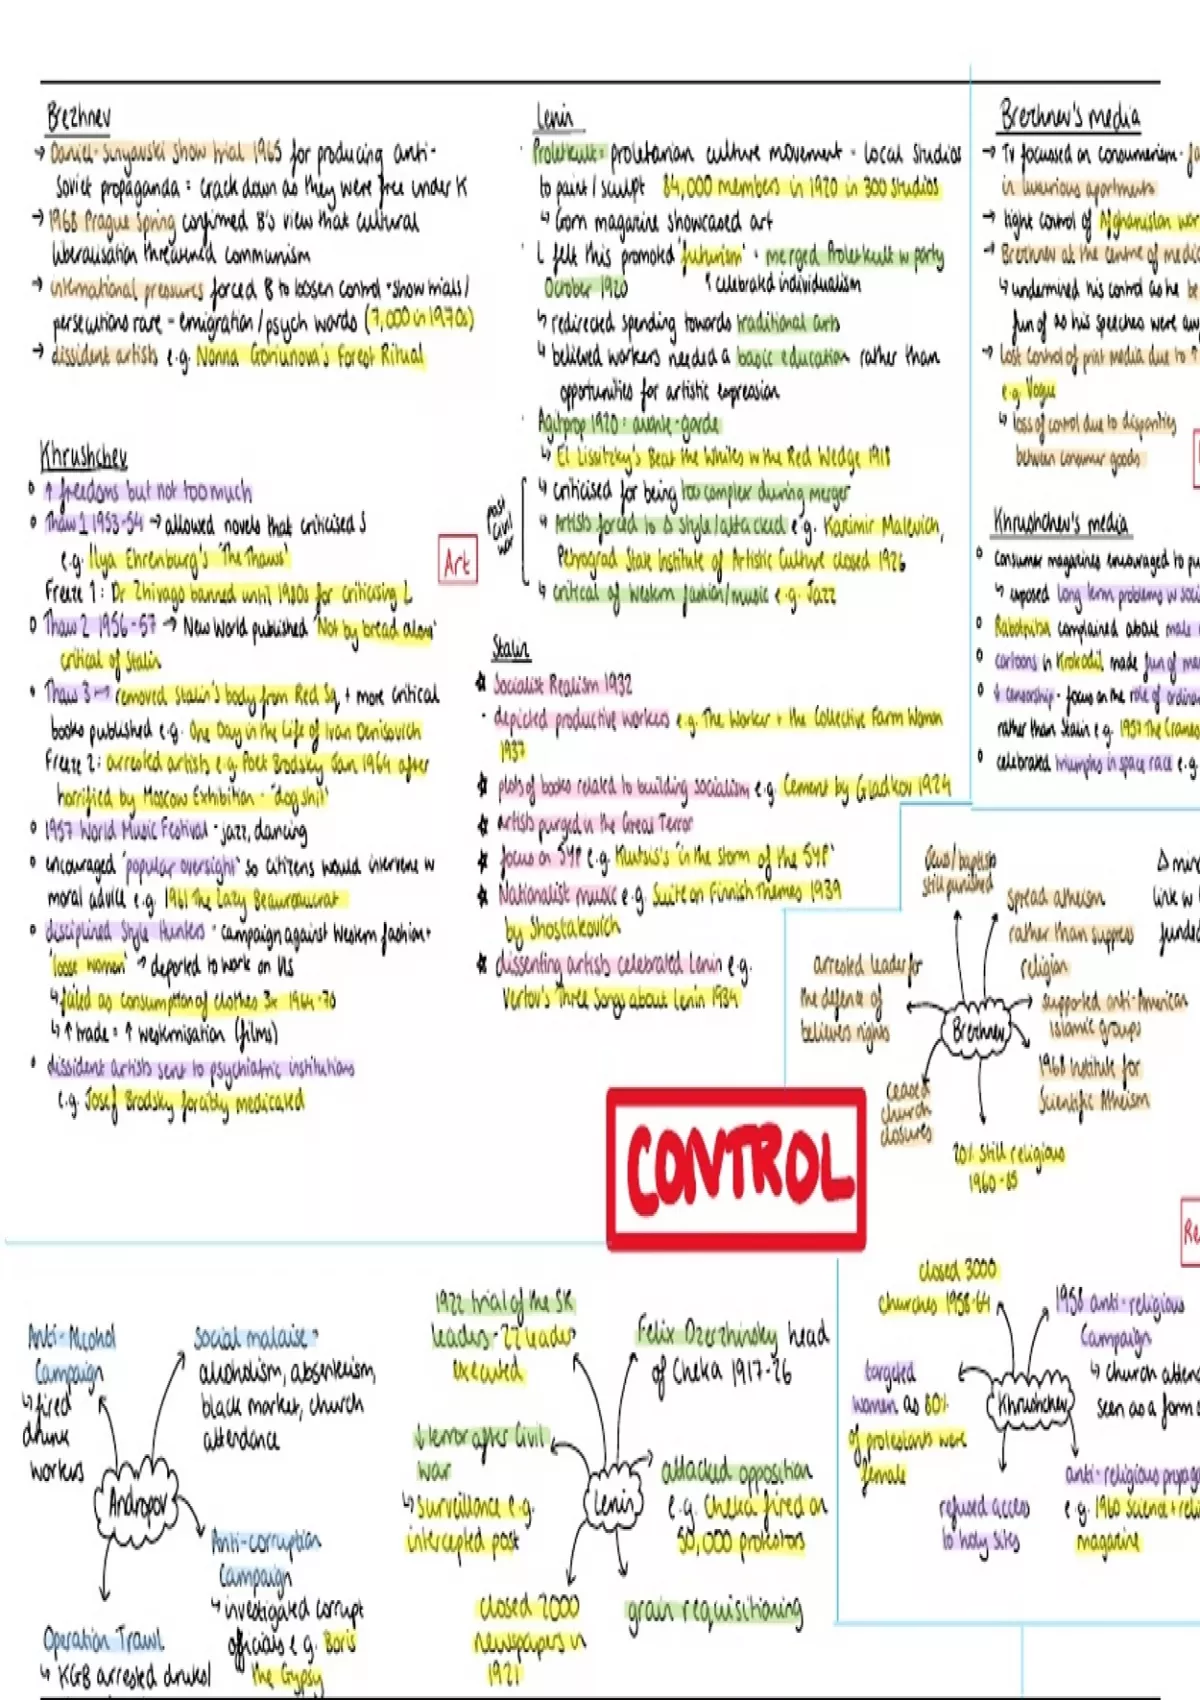 Brezhnev
→ Daniel-Sinyavski Show trial 1965 for producing anti-
Soviet propaganda = crack down as they were free under K
→ 1968 Prague Spring confirmed B's view that cultural
liberalisation threatened communism
→ international pressures forced B to loosen control - show trials/
persecutions rare - emigration/psych wards (7,000 in 1970s)
→ dissident artists e.g. Nonna Goriunova's Forest Ritual
Khrushchev
↑ freedoms but not too much
Thaw 1 1953-54 → allowed novels that criticised S
e.g. Ilya Ehrenburg's 'The Thaws'
Freeze 1: Dr Zhivago banned until 1980s for criticising L
Thaw 2 1956-57 → New World published 'Not by bread alone'
critical of Stalin
Thaw 3 → removed Stalin's body from Red Sq, + more critical
books published e.g. One Day in the Life of Ivan Denisovich
Freeze 2: arrested artists e.g. Poet Brodsky Jan 1964 after
horrified by Moscow Exhibition - 'dog shit'
1957 World Music Festival - jazz, dancing
encouraged 'popular oversight' so citizens would intervene w
moral advice e.g. 1961 The Lazy Bureaucrat
disciplined Style Hunters - campaign against Western fashion +
'loose women' → deported to work on VLs
↳ failed as consumption of clothes 3x 1964-70
↳ ↑ trade = ↑ westernisation (films)
dissident artists sent to psychiatric institutions
e.g. Josef Brodsky forcibly medicated
Art
Lenin
Proletkult = proletarian culture movement - local studios
to paint/sculpt 84,000 members in 1920 in 300 studios
↳ Gorn magazine showcased art
L felt this promoted 'futurism' - merged Proletkult w party
October 1920 ↑ celebrated individualism
↳ redirected spending towards traditional arts
↳ believed workers needed a basic education rather than
opportunities for artistic expression
Agitprop 1920: avante-garde
↳ El Lissitzky's Beat the Whites w the Red Wedge 1918
post civil war
↳ criticised for being too complex during merger
↳ Artists forced to Δ style/attacked e.g. Kasimir Malevich,
Petrograd State Institute of Artistic Culture closed 1926
↳ critical of Western fashion/music e.g. Jazz
Stalin
Socialist Realism 1932
- depicted productive workers e.g. The Worker + the Collective Farm Woman
1937
plots of books related to building socialism e.g. Cement by Gladkov 1924
artists purged in the Great Terror
focus on 5YP e.g. Klutsis's 'in the storm of the 5YP'
Nationalist music e.g. Suite on Finnish Themes 1939
by Shostakovich
dissenting artists celebrated Lenin e.g.
Vertov's Three Songs about Lenin 1934
Brezhnev's media
→ TV focussed on consumerism -
in luxurious apartments
→ tight control of Afghanistan war
→ Brezhnev at the centre of media
↳ undermined his control as he be
fun of as his speeches were
→ Lost control of print media due to ↑
e.g. Vogue
↳ loss of control due to disparities
between consumer goods
Khrushchev's media
consumer magazines encouraged to
↳ exposed long term problems w soci
Rabotnitsa complained about male
cartoons in Krokodil made fun of
↓ censorship - focus on the role of ordina
rather than Stalin e.g. 1957 The Cranes
celebrated triumphs in space race e.g.
CONTROL
Jews/baptists
still punished
spread atheism
rather than suppress
religion
arrested leader for
the defence of
believers rights
Brezhnev
supported anti-American
Islamic groups
1968 Institute for
Scientific Atheism
ceased
church
closures
20% still religious
1960-85
link w
funded
Re
closed 3000
churches 1958-64
1958 anti-religious
campaign
↳ church atten
seen as a form
targeted
women as 80%
of protestants were
female
Khrushchev
refused access
to holy sites
anti-religious propag
e.g. 1960 Science + reli
magazine
Anti-Alcohol
Campaign
↳ fired
drunk
workers
Social malaise =
alcoholism, absenteeism,
black market, church
attendance
Andropov
Anti-corruption
Campaign
↳ investigated corrupt
officials e.g. Boris
the Gypsy
Operation Trawl
↳ KGB arrested drunks/
1922 trial of the SR
leaders - 22 leaders
executed
Felix Dzerzhinsky head
of Cheka 1917-26
↓ terror after Civil
war
↳ Surveillance e.g.
intercepted post
Lenin
attacked opposition
e.g. Cheka fired on
50,000 protestors
closed 2000
newspapers in
1921
grain requisitioning